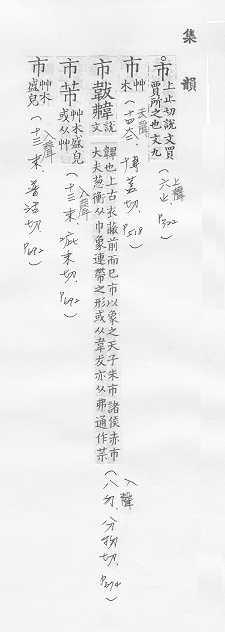 集韻
市 上止切說文買賣所之也文九 (六止、上聲 P322)
市 艸木 (十四太、去聲 博蓋切、P518)
市韍韠 說文韠也上古衣蔽前而已市以象之天子朱市諸侯赤市大夫葱衡从巾象連帶之形或从韋友亦从弗通作芾 (八勿、入聲 分物切、P674)
市芾 艸木盛皃或从艸 (十三末、入聲 P692)
市 艸木盛皃 (十三末、入聲 普活切、P692)